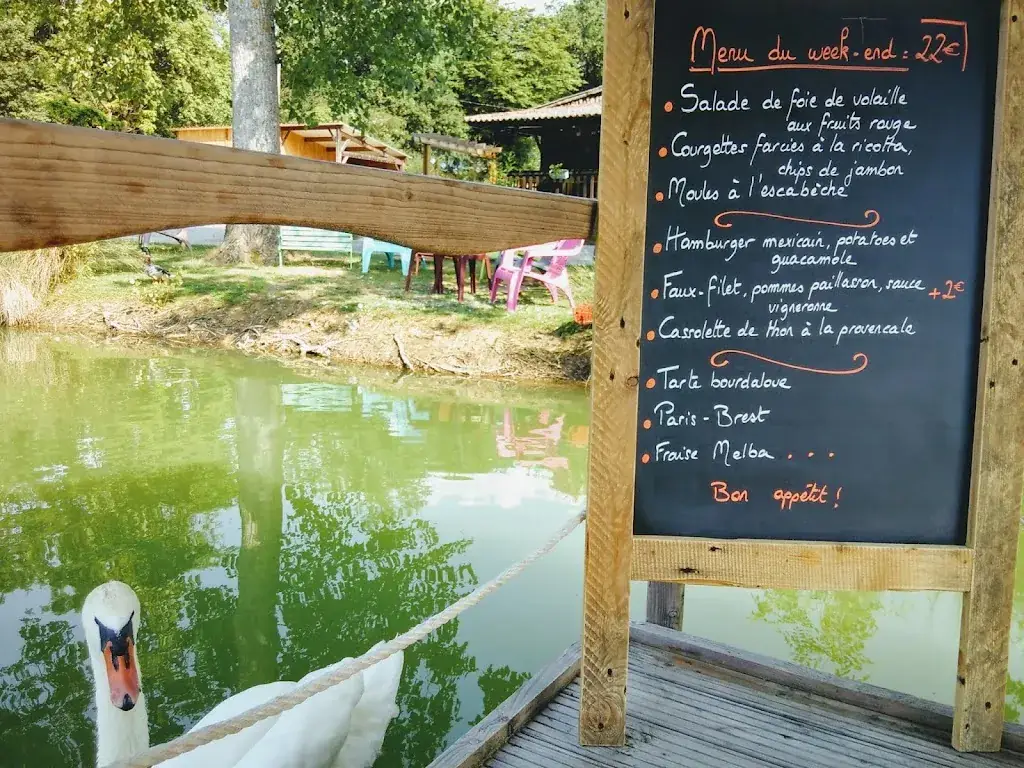 Menu du week-end : 22€
• Salade de foie de volaille
aux fruits rouge
• Courgettes farcies à la ricotta,
chips de jambon
• Moules à l'escabèche
• Hamburger mexicain, potatoes et
guacamole
• Faux-filet, pommes paillasson, sauce +2€
vigneronne
• Cassolette de thon à la provencale
• Tarte bourdaloue
• Paris-Brest
• Fraise Melba...
Bon appétit !